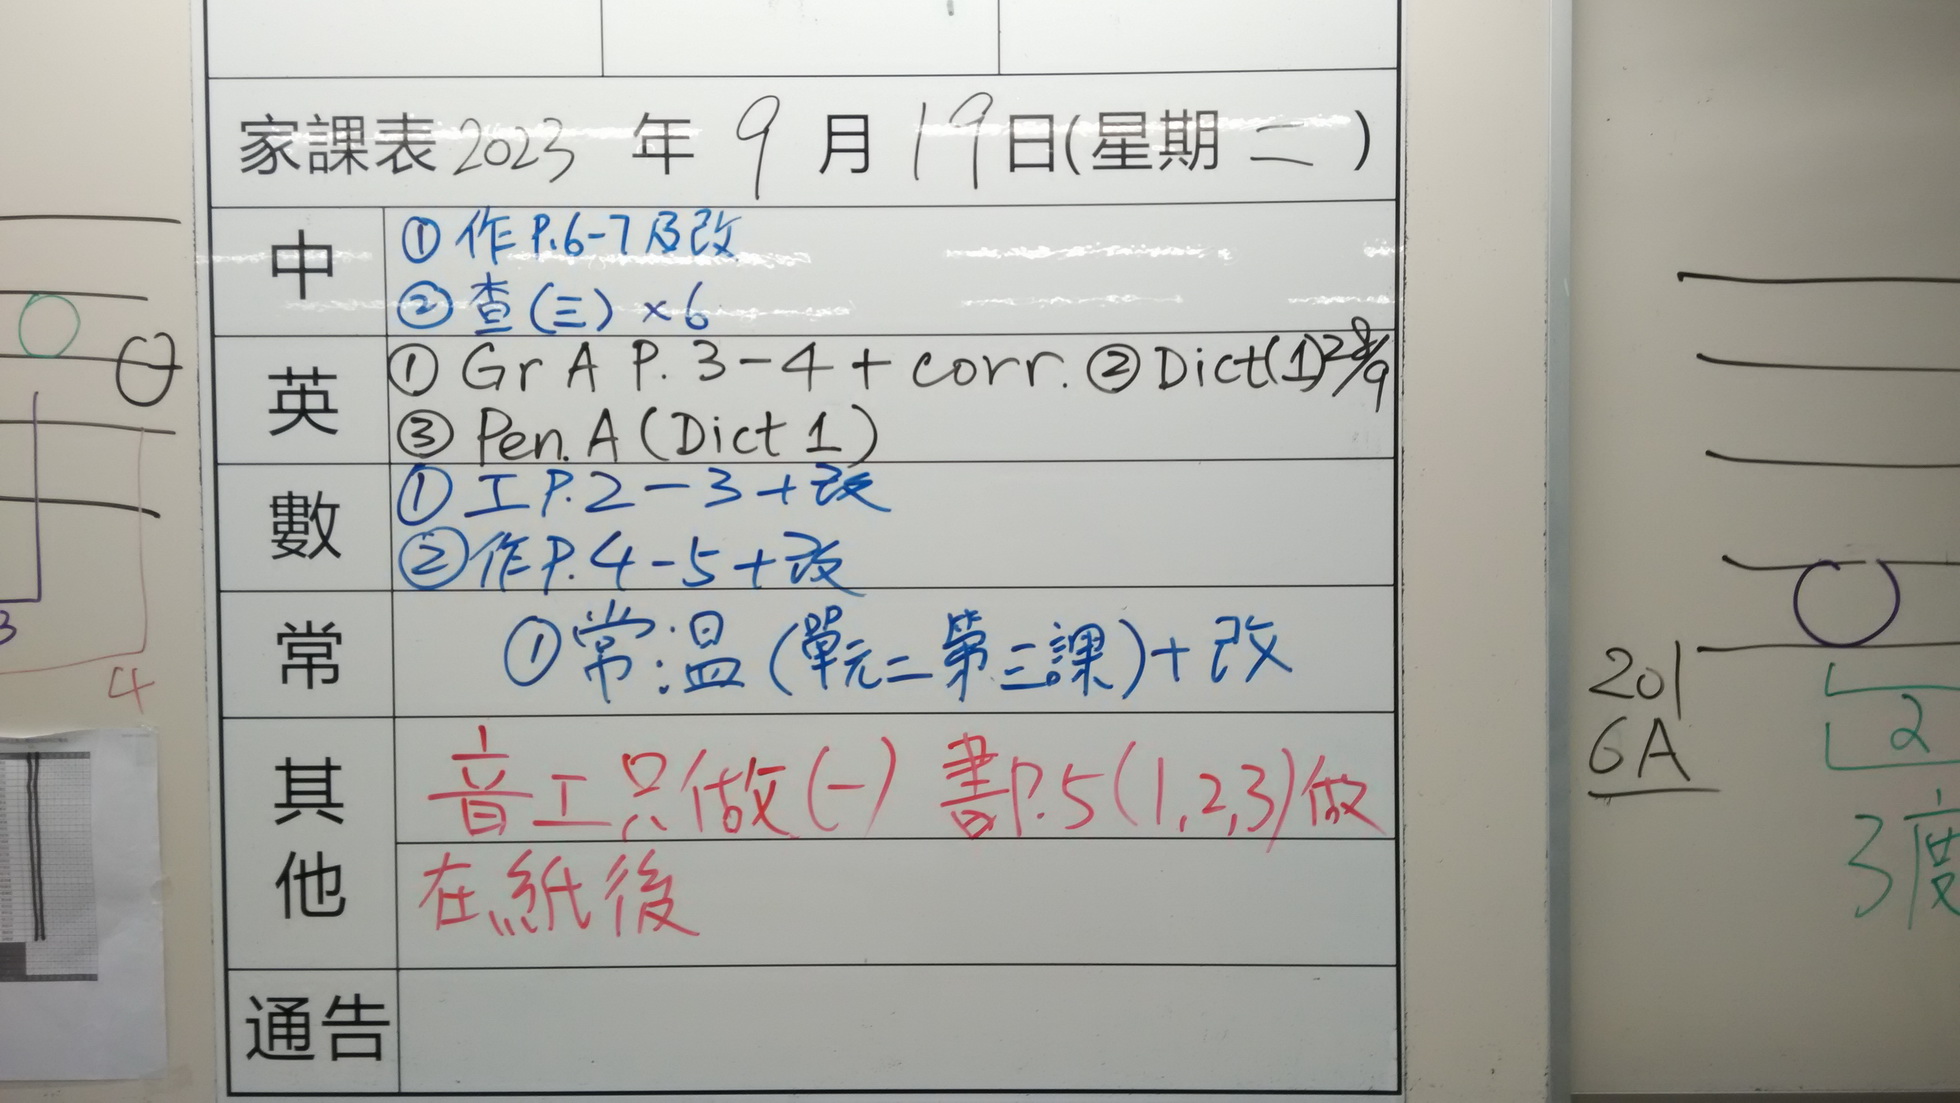 家課表 2023 年 9 月 19 日(星期 二 )
中
① 作 P.6-7 及改
② 查 (三) × 6
英
① Gr A P. 3 - 4 + corr. ② Dict(1) 28/9
③ Pen. A (Dict 1)
數
① 工 P. 2 - 3 + 改
② 作 P. 4 - 5 + 改
常
① 常:温 (單元二第三課) + 改
其他
音工只做(一) 書P.5 (1,2,3) 做
在紙後
通告
3
4
201
6A
2
3度